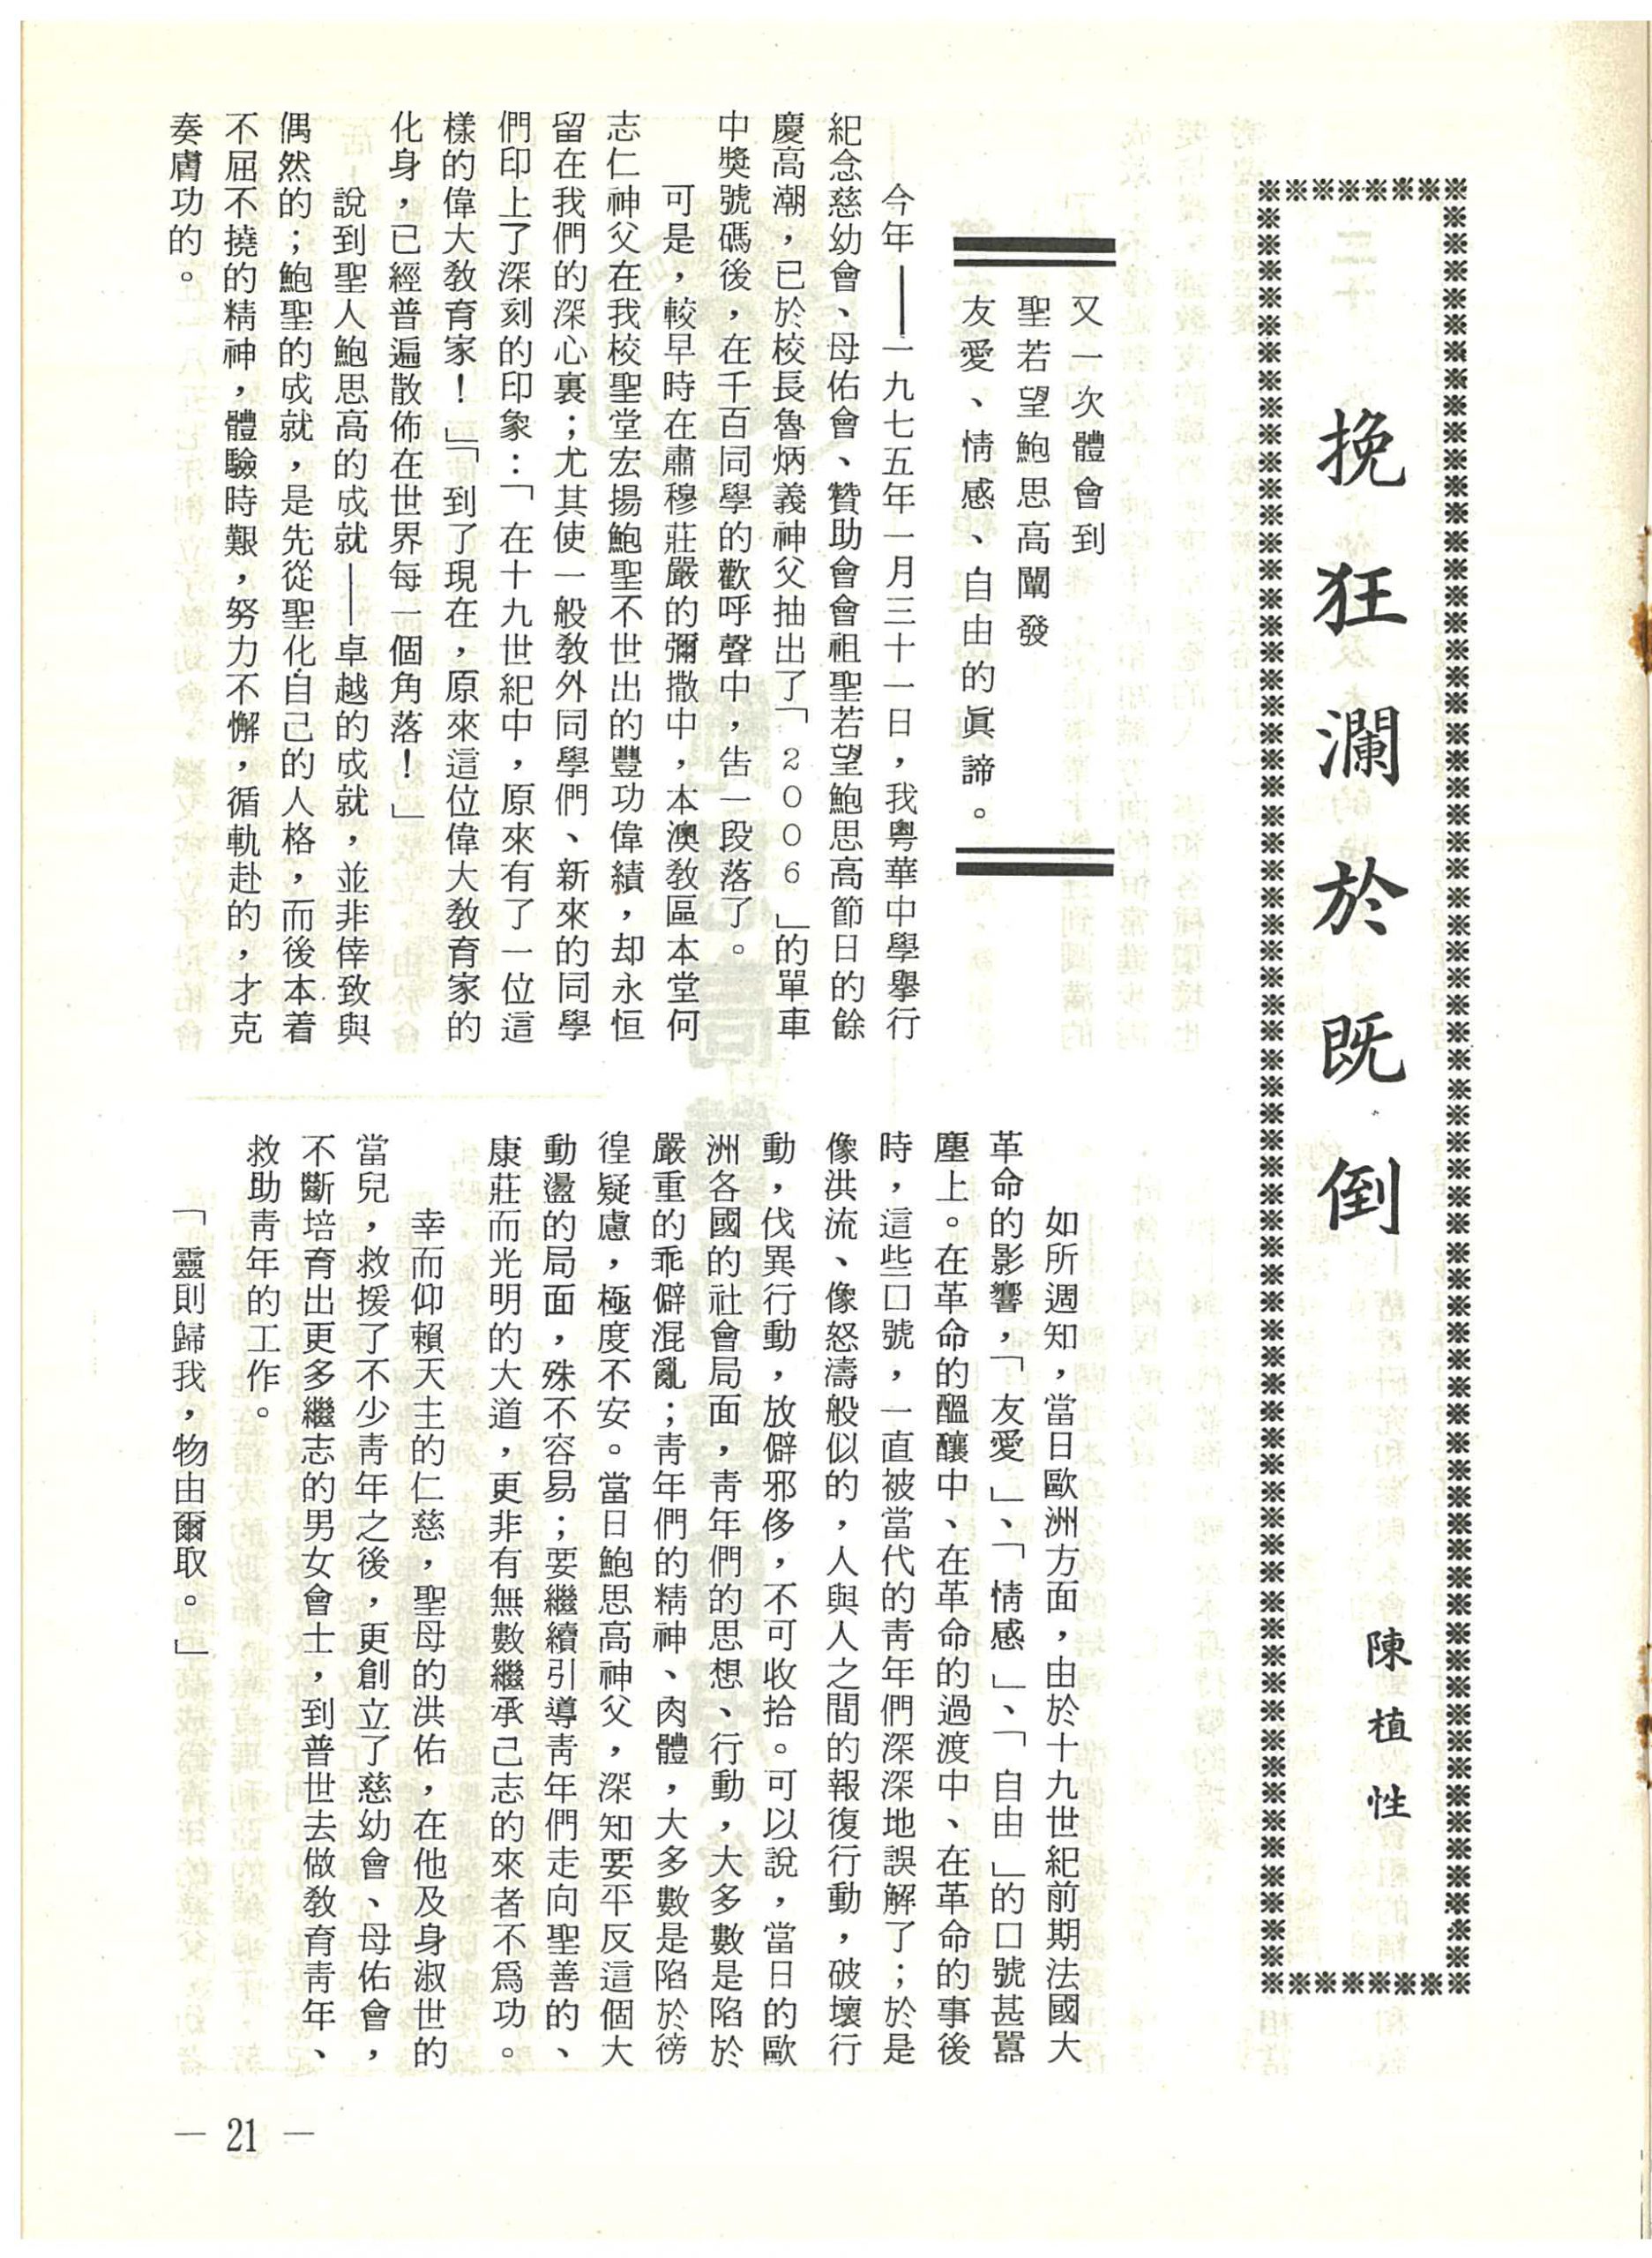 挽狂瀾於既倒
陳植性
又一次體會到
聖若望鮑思高闡發
友愛、情感、自由的眞諦。
今年——一九七五年一月三十一日，我粤華中學舉行
紀念慈幼會、母佑會、贊助會會祖聖若望鮑思高節日的餘
慶高潮，已於校長魯炳義神父抽出了「2006」的單車
中獎號碼後，在千百同學的歡呼聲中，告一段落了。
可是，較早時在肅穆莊嚴的彌撒中，本澳敎區本堂何
志仁神父在我校聖堂宏揚鮑聖不世出的豐功偉績，却永恒
留在我們的深心裏；尤其使一般敎外同學們、新來的同學
們印上了深刻的印象：「在十九世紀中，原來有了一位這
樣的偉大敎育家！」「到了現在，原來這位偉大敎育家的
化身，已經普遍散佈在世界每一個角落！」
說到聖人鮑思高的成就——卓越的成就，並非倖致與
偶然的；鮑聖的成就，是先從聖化自己的人格，而後本着
不屈不撓的精神，體驗時艱，努力不懈，循軌赴的，才克
奏膚功的。
如所週知，當日歐洲方面，由於十九世紀前期法國大
革命的影響，「友愛」、「情感」、「自由」的口號甚囂
塵上。在革命的醞釀中、在革命的過渡中、在革命的事後
時，這些口號，一直被當代的靑年們深深地誤解了；於是
像洪流、像怒濤般似的，人與人之間的報復行動，破壞行
動，伐異行動，放僻邪侈，不可收拾。可以說，當日的歐
洲各國的社會局面，靑年們的思想、行動，大多數是陷於
嚴重的乖僻混亂；靑年們的精神、肉體，大多數是陷於徬
徨疑慮，極度不安。當日鮑思高神父，深知要平反這個大
動盪的局面，殊不容易；要繼續引導靑年們走向聖善的、
康莊而光明的大道，更非有無數繼承己志的來者不爲功。
幸而仰賴天主的仁慈，聖母的洪佑，在他及身淑世的
當兒，救援了不少靑年之後，更創立了慈幼會、母佑會，
不斷培育出更多繼志的男女會士，到普世去做敎育靑年、
救助靑年的工作。
「靈則歸我，物由爾取。」
— 21 —